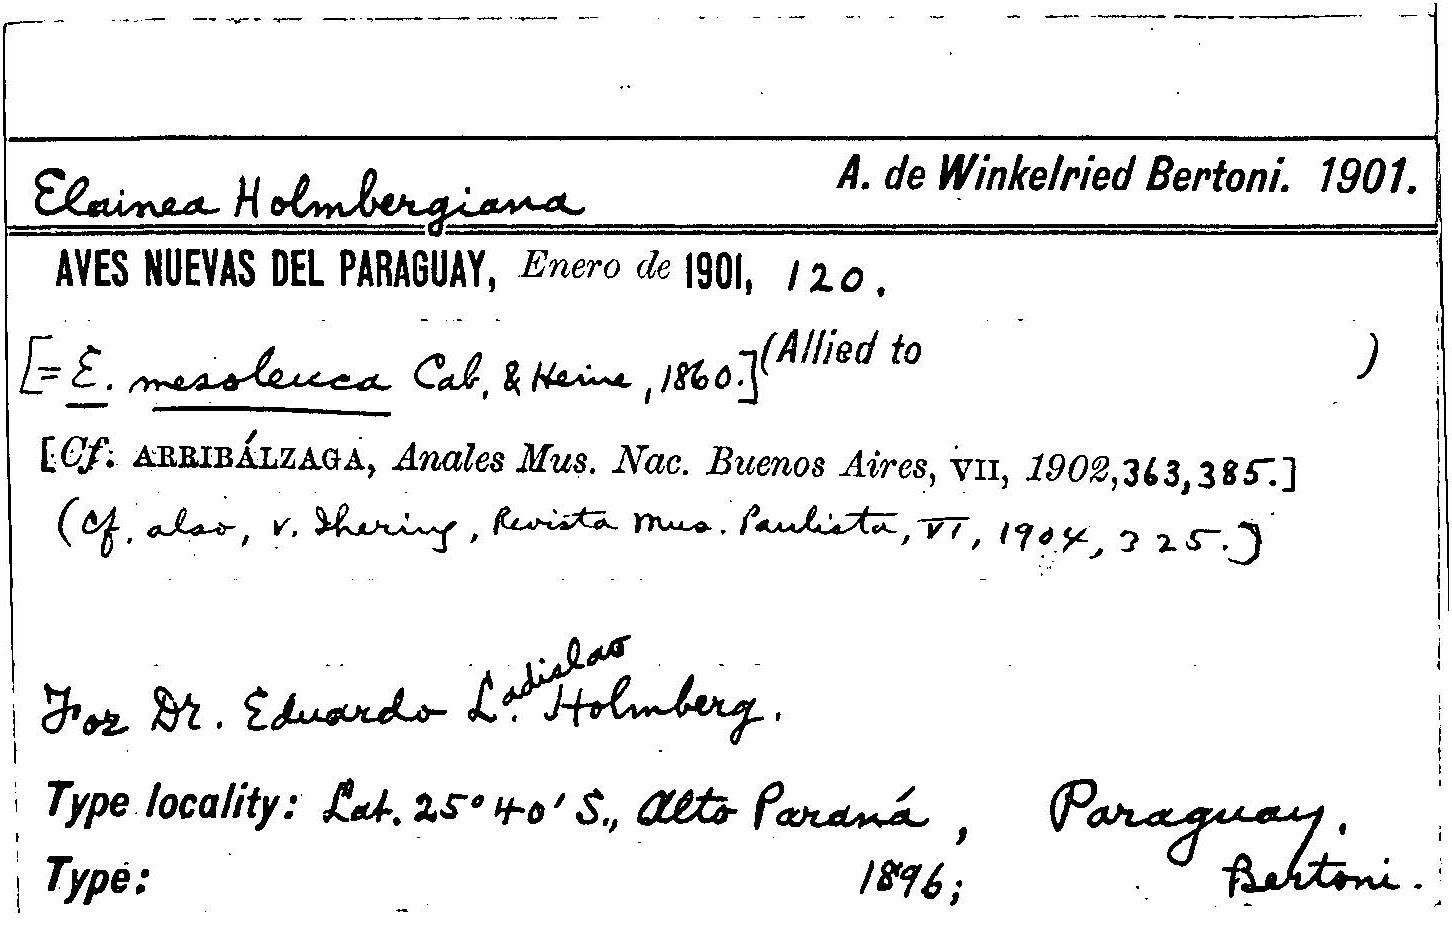 Elainea Holmbergiana A. de Winkelried Bertoni. 1901.
AVES NUEVAS DEL PARAGUAY, Enero de 1901, 120.
[= E. mesoleuca Cab. & Heine, 1860.] (Allied to )
[Cf. ARRIBÁLZAGA, Anales Mus. Nac. Buenos Aires, VII, 1902, 363, 385.]
(Cf. also, v. Ihering, Revista Mus. Paulista, VI, 1904, 325.]
For Dr. Eduardo Ladislao Holmberg.
Type locality: Lat. 25° 40' S., Alto Paraná, Paraguay.
Type: 1896; Bertoni.